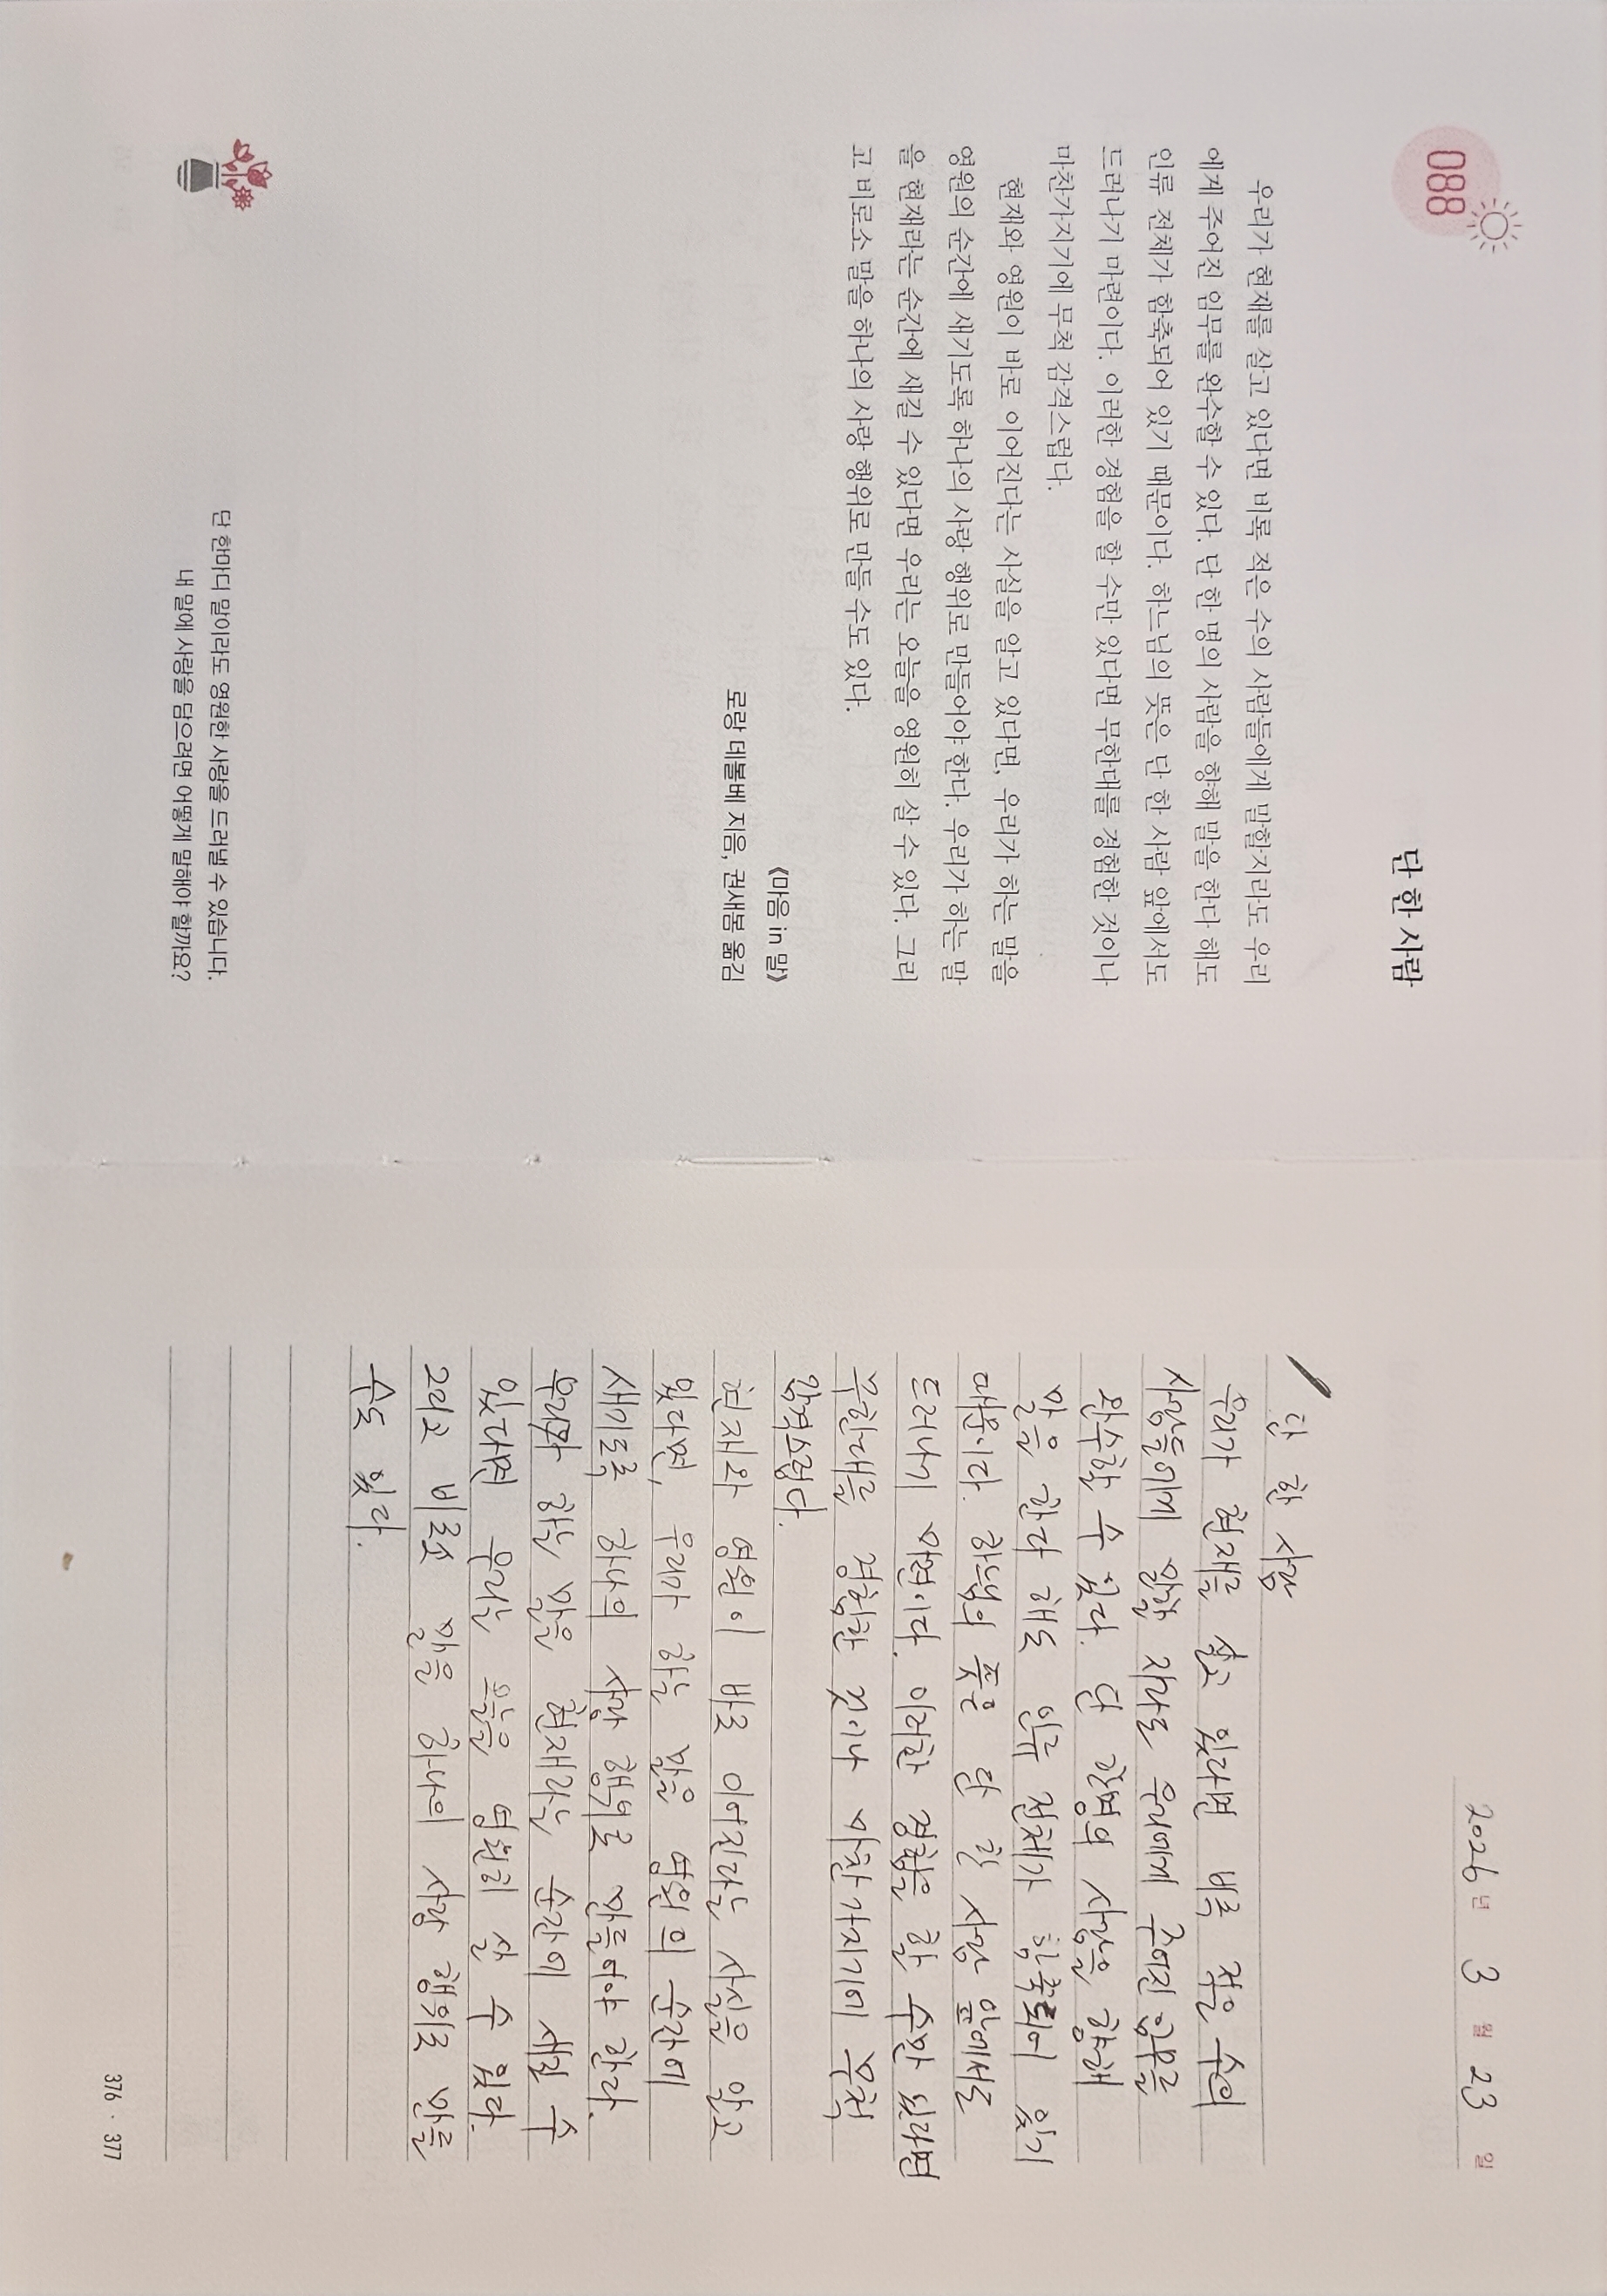 088
단 한 사람
우리가 현재를 살고 있다면 비록 적은 수의 사람들에게 말할지라도 우리
에게 주어진 임무를 완수할 수 있다. 단 한 명의 사람을 향해 말을 한다 해도
인류 전체가 함축되어 있기 때문이다. 하느님의 뜻은 단 한 사람 앞에서도
드러나기 마련이다. 이러한 경험을 할 수만 있다면 무한대를 경험한 것이나
마찬가지기에 무척 감격스럽다.
현재와 영원이 바로 이어진다는 사실을 알고 있다면, 우리가 하는 말을
영원의 순간에 새기도록 하나의 사랑 행위로 만들어야 한다. 우리가 하는 말
을 현재라는 순간에 새길 수 있다면 우리는 오늘을 영원히 살 수 있다. 그리
고 비로소 말을 하나의 사랑 행위로 만들 수도 있다.
《마음 in 말》
로랑 데볼베 지음, 권새봄 옮김
단 한마디 말이라도 영원한 사랑을 드러낼 수 있습니다.
내 말에 사랑을 담으려면 어떻게 말해야 할까요?
2026년 3월 23일
단 한 사람
우리가 현재를 살고 있다면 비록 적은 수의
사람들에게 말할 지라도 우리에게 주어진 임무를
완수할 수 있다. 단 한명의 사람을 향해
말을 한다 해도 인류 전체가 함축되어 있기
때문이다. 하느님의 뜻은 단 한 사람 앞에서도
드러나기 마련이다. 이러한 경험을 할 수만 있다면
무한대를 경험한 것이나 마찬가지기에 무척
감격스럽다.
현재와 영원이 바로 이어진다는 사실을 알고
있다면, 우리가 하는 말을 영원의 순간에
새기도록 하나의 사랑 행위로 만들어야 한다.
우리가 하는 말을 현재라는 순간에 새길 수
있다면 우리는 오늘을 영원히 살 수 있다.
그리고 비로소 말을 하나의 사랑 행위로 만들
수도 있다.
376 · 377